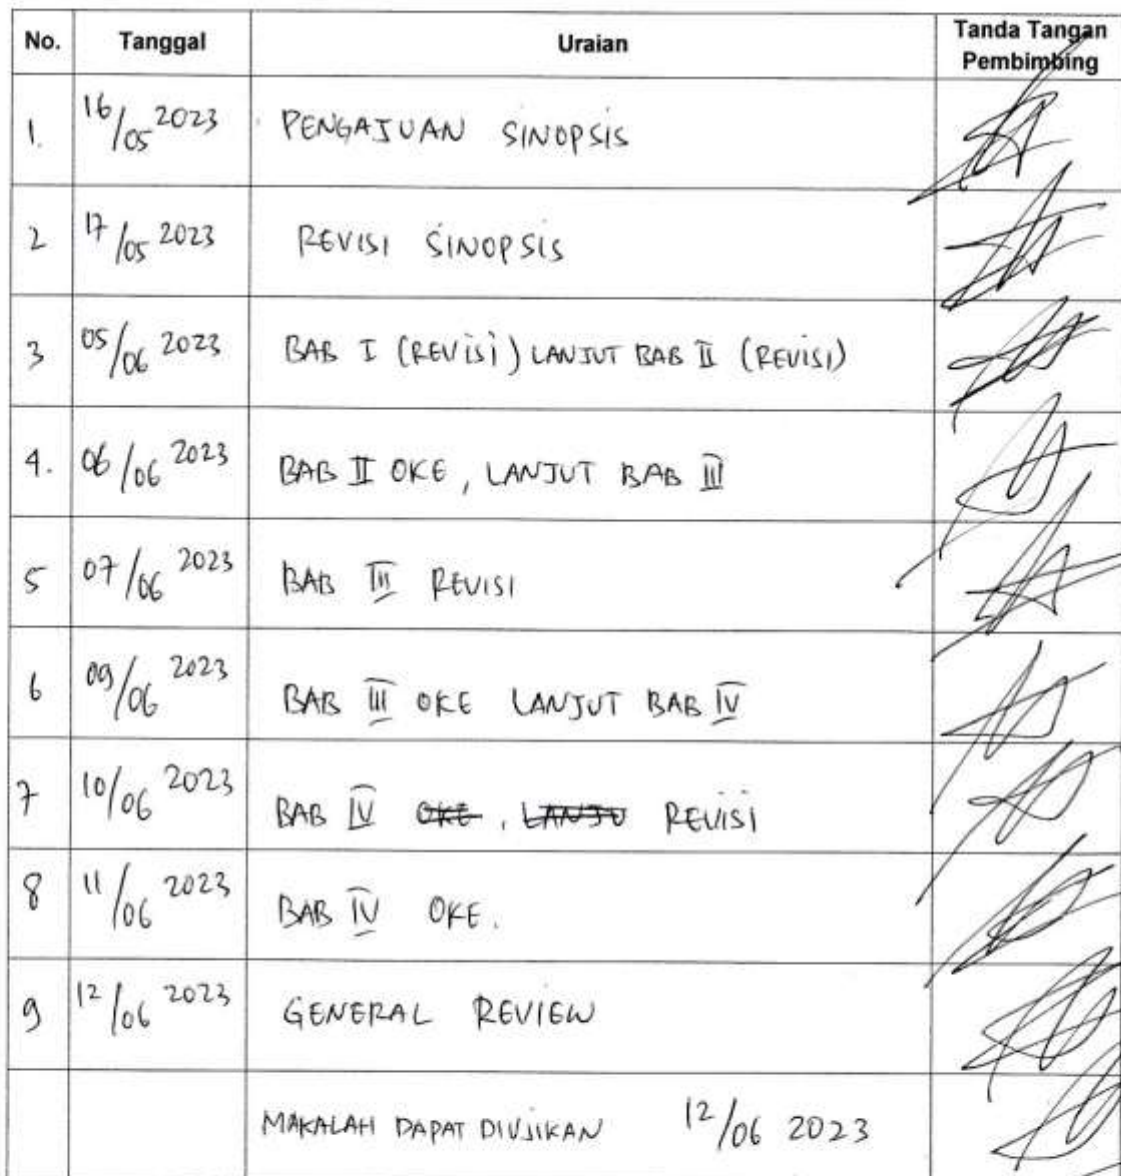 No. Tanggal Uraian Tanda Tangan Pembimbing
1. 16/05 2023 PENGAJUAN SINOPSIS
2 17/05 2023 REVISI SINOPSIS
3 05/06 2023 BAB I (REVISI) LANJUT BAB II (REVISI)
4. 06/06 2023 BAB II OKE, LANJUT BAB III
5 07/06 2023 BAB III REVISI
6 09/06 2023 BAB III OKE LANJUT BAB IV
7 10/06 2023 BAB IV OKE, LANJU REVISI
8 11/06 2023 BAB IV OKE.
9 12/06 2023 GENERAL REVIEW
MAKALAH DAPAT DIUJIKAN 12/06 2023